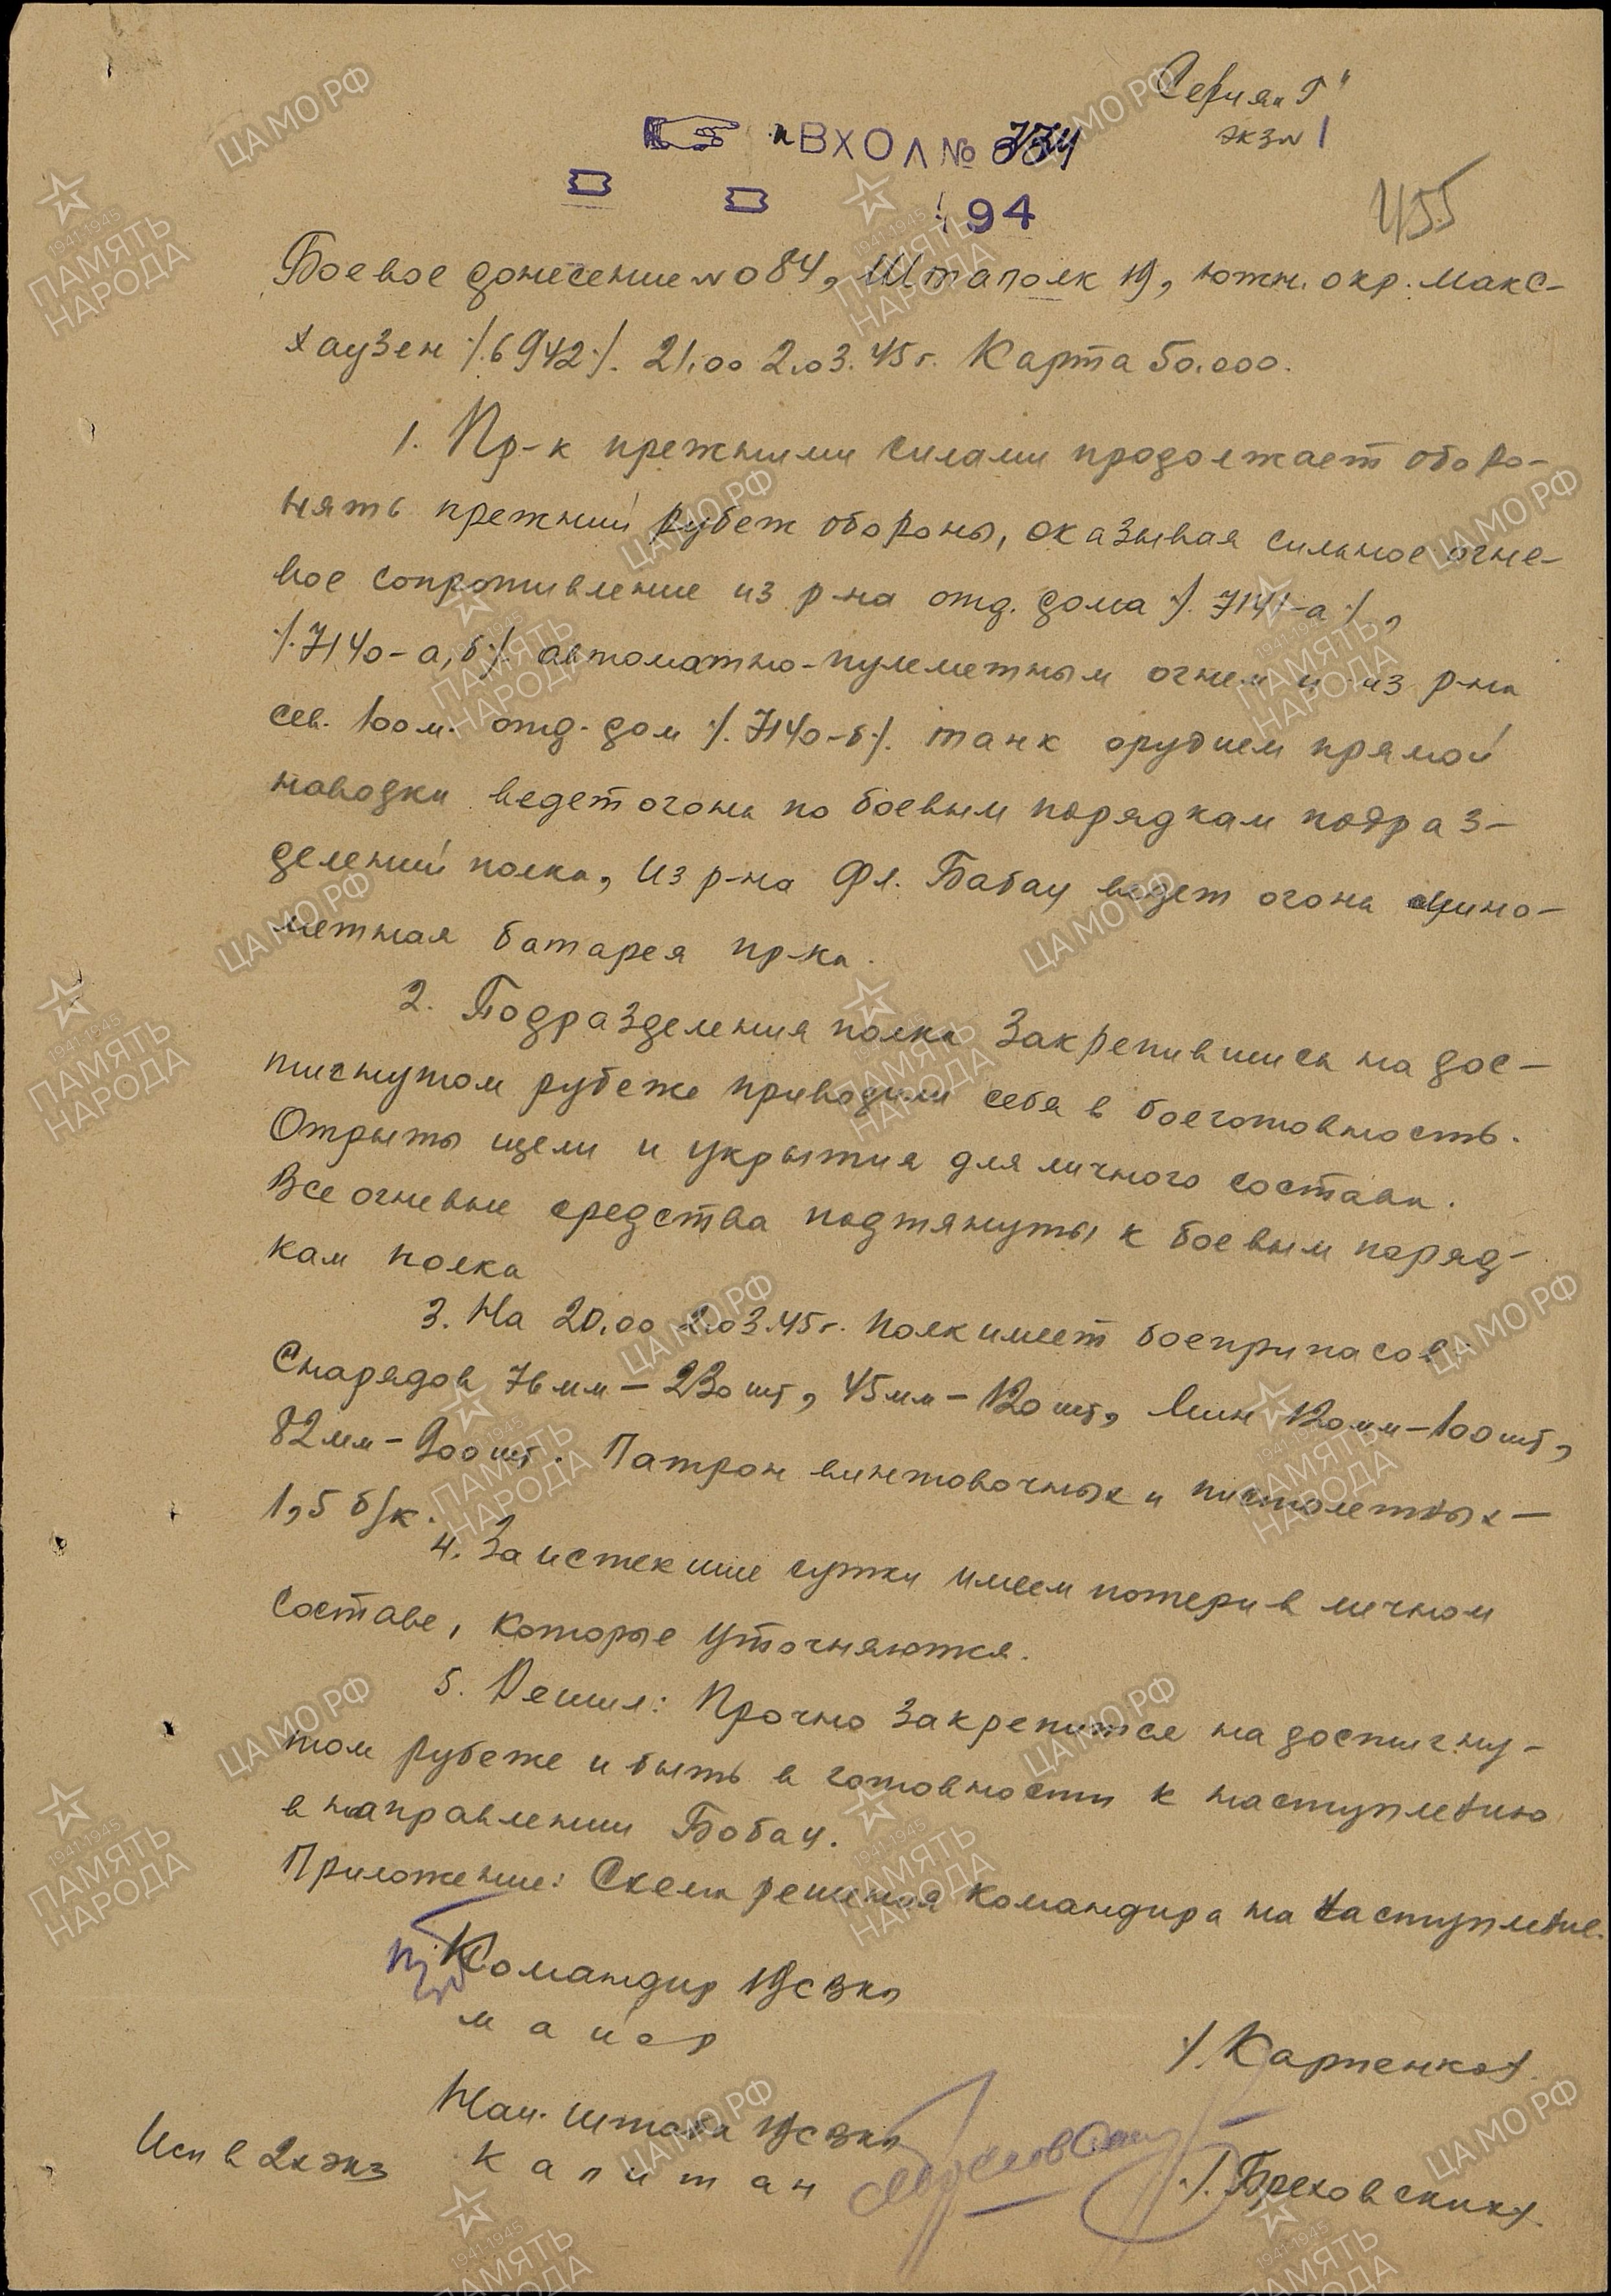 Серия „Г"
экз № 1
ВХОД №
194
455
Боевое донесение № 084, Штаполк 19, южн. окр. Макс-
хаузен /.6942/. 21.00 2.03.45 г. Карта 50.000.
1. Пр-к прежними силами продолжает оборо-
нять прежний рубеж обороны, оказывая сильное огне-
вое сопротивление из р-на отд. дома /.7141-а/.,
/.7140-а,б/. автоматно-пулеметным огнем и из р-на
сев. 100 м. отд. дом /.7140-б/. танк орудием прямой
наводки ведет огонь по боевым порядкам подраз-
делений полка, из р-на Фл. Бабау ведет огонь мино-
метная батарея пр-ка.
2. Подразделения полка закрепившись на дос-
тигнутом рубеже приводили себя в боеготовность.
Отрыты щели и укрытия для личного состава.
Все огневые средства подтянуты к боевым поряд-
кам полка
3. На 20.00 2.03.45 г. полк имеет боеприпасов
Снарядов 76 мм – 230 шт, 45 мм – 120 шт, Мин 120 мм – 100 шт,
82 мм – 900 шт. Патрон винтовочных и пистолетных –
1,5 б/к.
4. За истекшие сутки имеем потери в личном
составе, которые уточняются.
5. Решил: Прочно закрепится на достигну-
том рубеже и быть в готовности к наступлению
в направлении Бобау.
Приложение: Схема решения командира на наступление.
Командир 19 СВКП
майор
/.Карпенко/.
Нач. штаба 19 СВКП
Исп в 2х экз
капитан
/.Бреховских/.
ЦАМО РФ
1941-1945
ПАМЯТЬ
НАРОДА